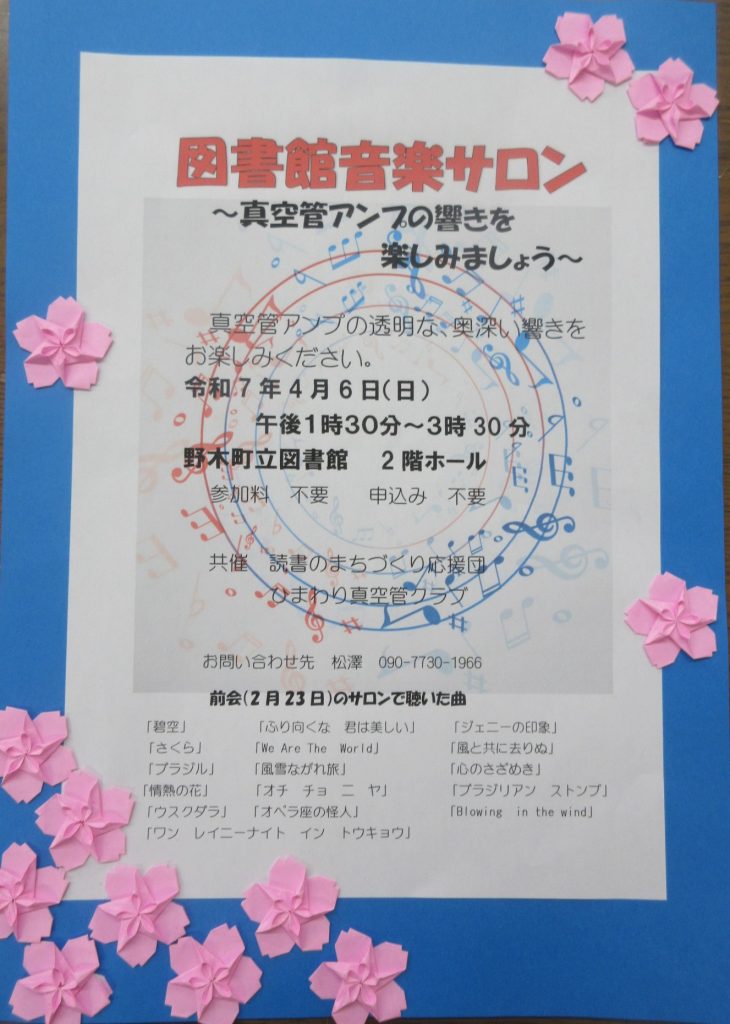 図書館音楽サロン
～真空管アンプの響きを
楽しみましょう～
真空管アンプの透明な、奥深い響きを
お楽しみください。
令和7年4月6日(日)
午後1時30分～3時30分
野木町立図書館　2階ホール
参加料　不要　　申込み　不要
共催　読書のまちづくり応援団
ひまわり真空管クラブ
お問い合わせ先　松澤　090-7730-1966
前会(2月23日)のサロンで聴いた曲
「碧空」　「ふり向くな　君は美しい」　「ジェニーの印象」
「さくら」　「We Are The World」　「風と共に去りぬ」
「ブラジル」　「風雪ながれ旅」　「心のさざめき」
「情熱の花」　「オチ　チョ　ニ　ヤ」　「ブラジリアン　ストンプ」
「ウスクダラ」　「オペラ座の怪人」　「Blowing in the wind」
「ワン　レイニーナイト　イン　トウキョウ」